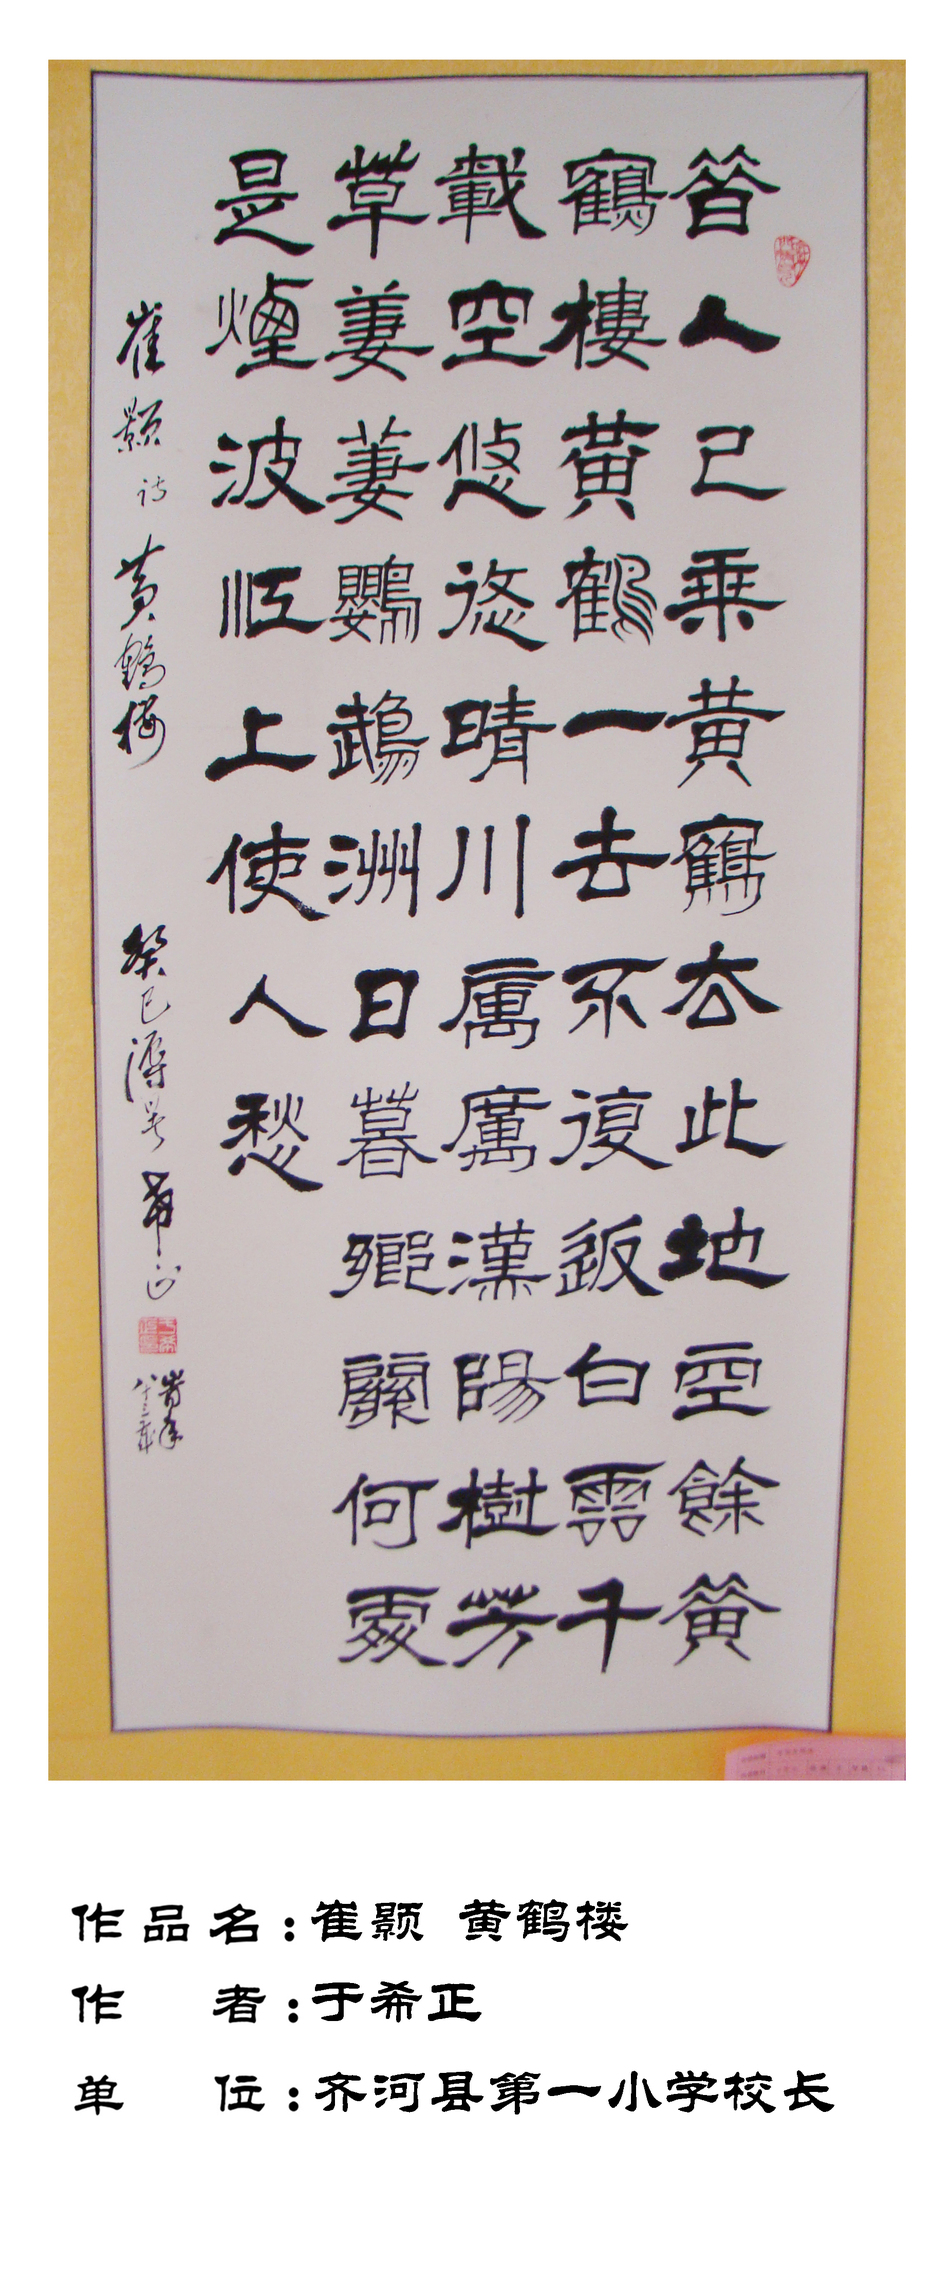 昔人已乘黄鶴去此地空餘黄
鶴樓黄鶴一去不復返白雲千
載空悠悠晴川厲厲漢陽樹芳
草萋萋鸚鵡洲日暮鄉關何處
是煙波江上使人愁
崔颢诗黄鹤楼 癸巳溽暑希正
时年
八十三岁
作品名:崔颢 黄鹤楼
作 者:于希正
单 位:齐河县第一小学校长